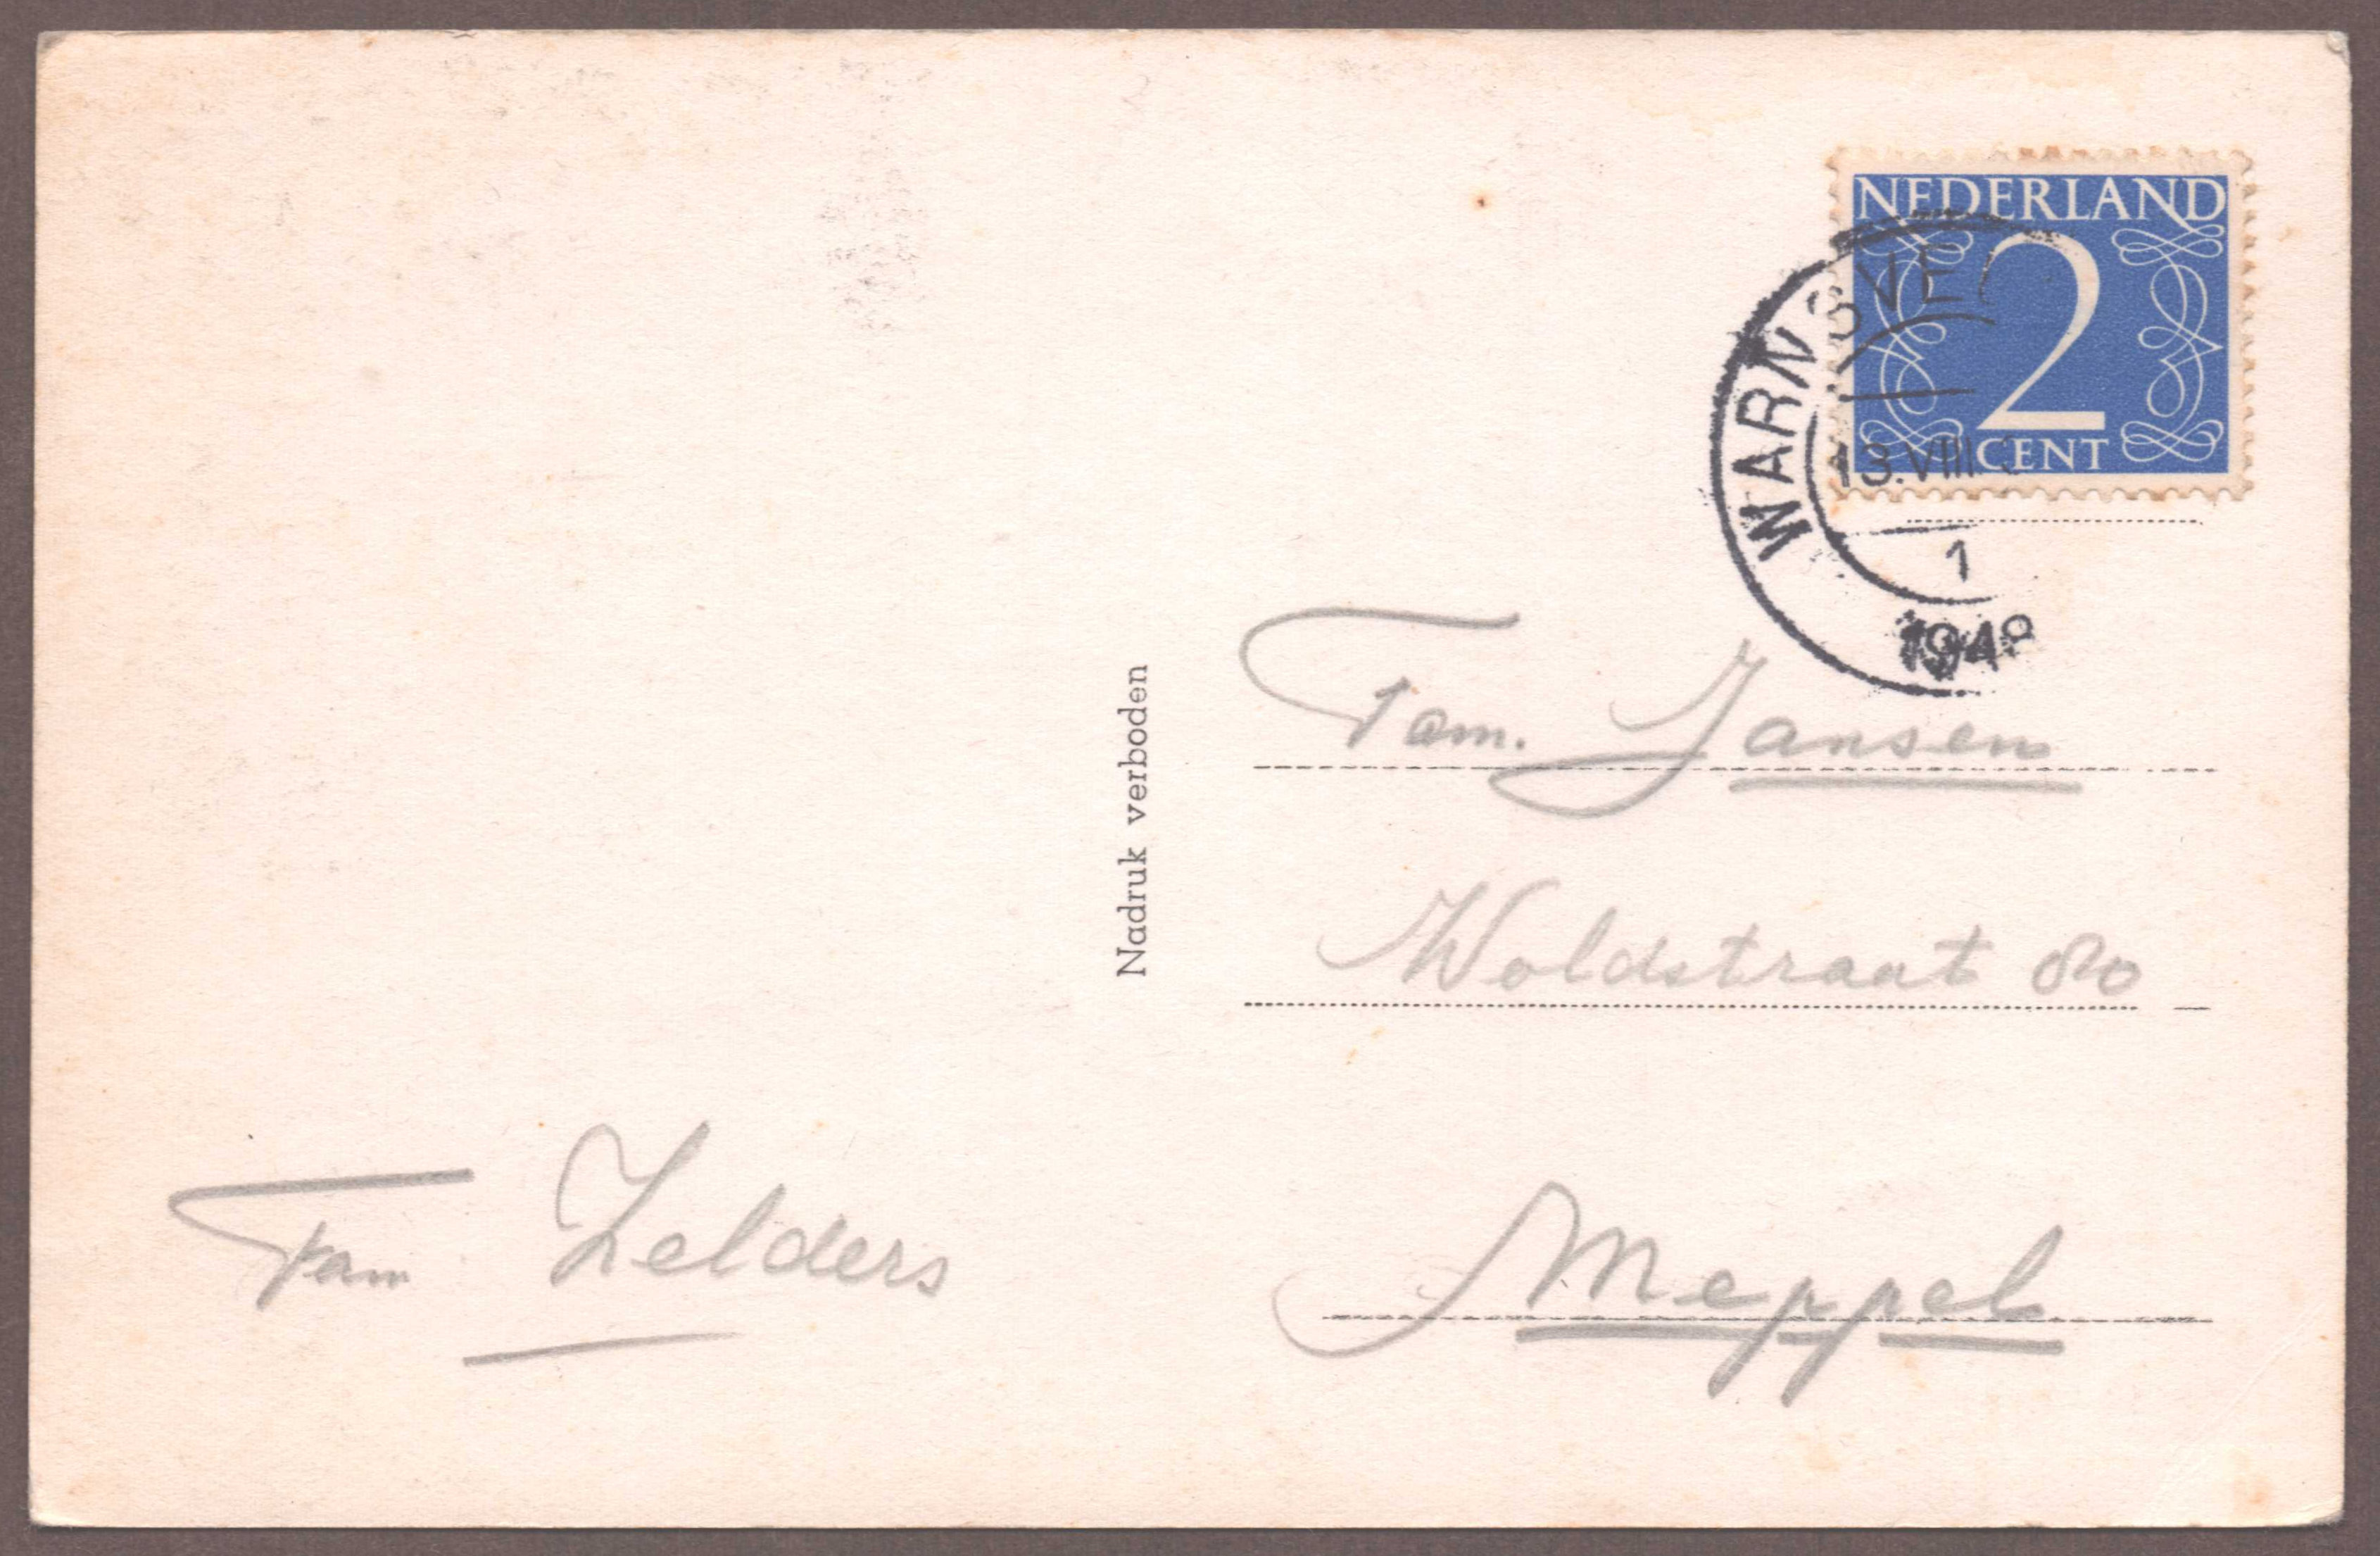 NEDERLAND
2
CENT
WARNSVE
13.VIII
1
1948
Fam. Jansen
Woldstraat 80
Meppel
Nadruk verboden
Fam Zelders